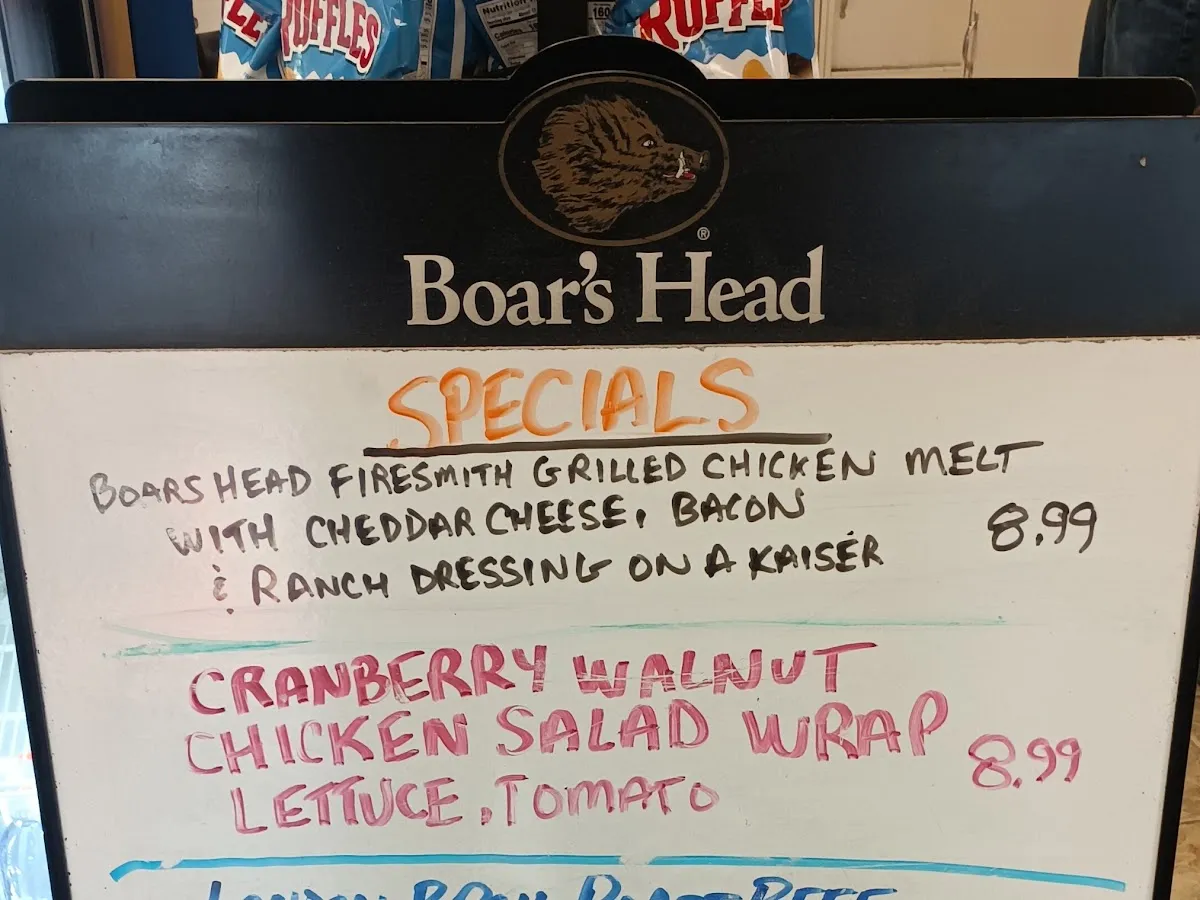 RUFFLES
RUFFLES
Nutrition
160
Boar's Head
®
SPECIALS
BOARS HEAD FIRESMITH GRILLED CHICKEN MELT
WITH CHEDDAR CHEESE, BACON
& RANCH DRESSING ON A KAISER
8.99
CRANBERRY WALNUT
CHICKEN SALAD WRAP
LETTUCE, TOMATO
8.99
LONDON BROIL ROAST BEEF